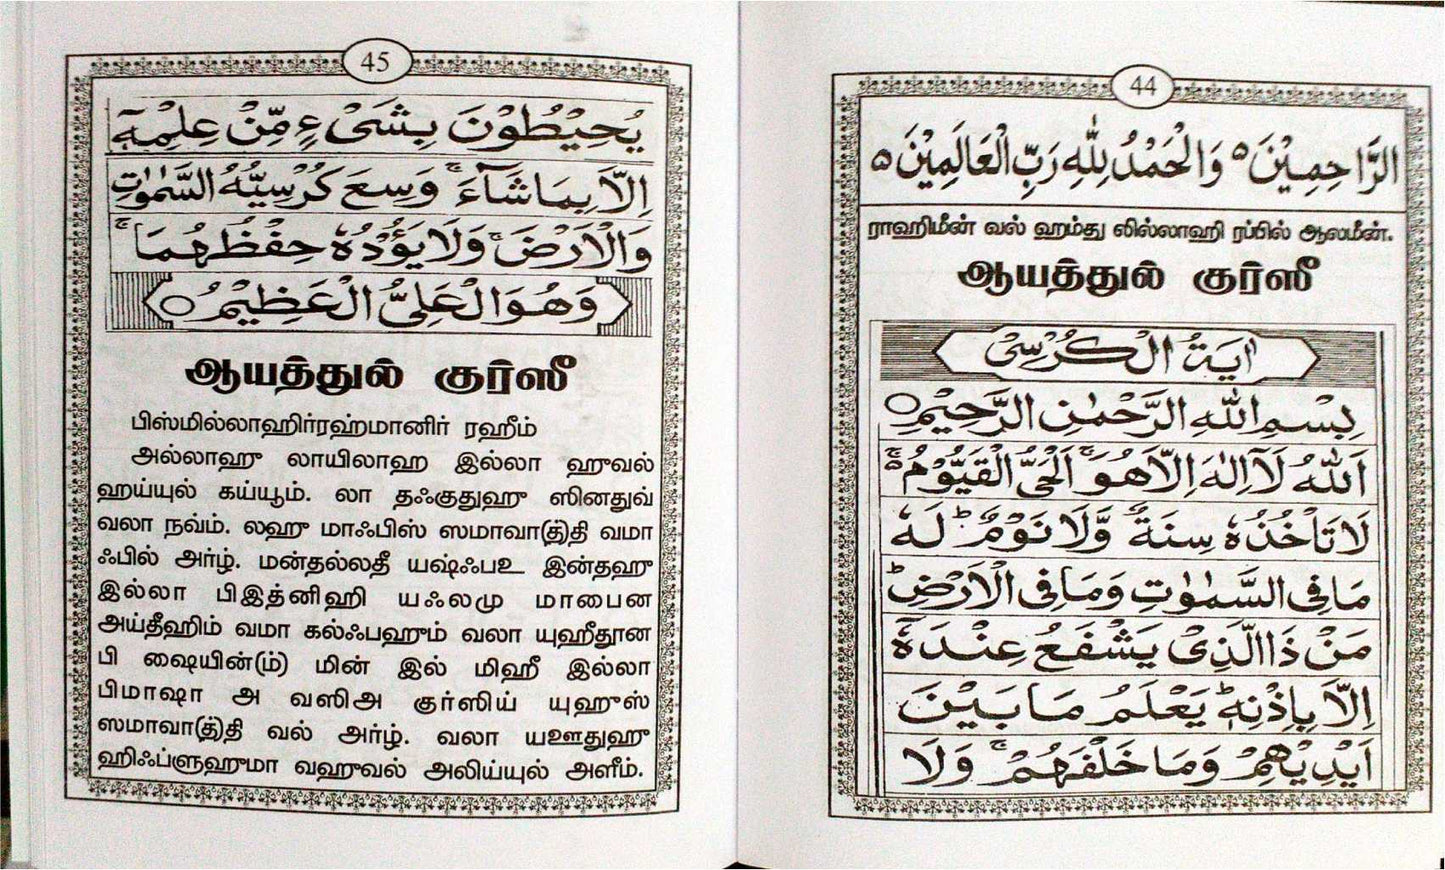 44
الرَّاحِمِيْنَ ۵ وَالْحَمْدُ لِلّٰهِ رَبِّ الْعَالَمِيْنَ ۵
ராஹிமீன் வல் ஹம்து லில்லாஹி ரப்பில் ஆலமீன்.
ஆயத்துல் குர்ஸீ
اٰيَةُ الْكُرْسِىْ
بِسْمِ اللّٰهِ الرَّحْمٰنِ الرَّحِيْمِ ○
اَللّٰهُ لَآ اِلٰهَ اِلَّا هُوَ ۚ اَلْحَىُّ الْقَيُّوْمُ ۚ۵
لَا تَاْخُذُهٗ سِنَةٌ وَّلَا نَوْمٌ ؕ لَهٗ
مَا فِى السَّمٰوٰتِ وَمَا فِى الْاَرْضِ ؕ
مَنْ ذَا الَّذِىْ يَشْفَعُ عِنْدَهٗٓ
اِلَّا بِاِذْنِهٖ ؕ يَعْلَمُ مَا بَيْنَ
اَيْدِيْهِمْ وَمَا خَلْفَهُمْ ۚ وَلَا
45
يُحِيْطُوْنَ بِشَىْءٍ مِّنْ عِلْمِهٖٓ
اِلَّا بِمَا شَآءَ ۚ وَسِعَ كُرْسِيُّهُ السَّمٰوٰتِ
وَالْاَرْضَ ۚ وَلَا يَؤُدُهٗ حِفْظُهُمَا ۚ
وَهُوَ الْعَلِىُّ الْعَظِيْمُ ○
ஆயத்துல் குர்ஸீ
பிஸ்மில்லாஹிர்ரஹ்மானிர் ரஹீம்
அல்லாஹு லாயிலாஹ இல்லா ஹுவல்
ஹய்யுல் கய்யூம். லா தஃகுதுஹு ஸினதுவ்
வலா நவ்ம். லஹு மாஃபிஸ் ஸமாவா(த்)தி வமா
ஃபில் அர்ழ். மன்தல்லதீ யஷ்ஃபஉ இன்தஹு
இல்லா பிஇத்னிஹி யஃலமு மாபைன
அய்தீஹிம் வமா கல்ஃபஹும் வலா யுஹீதூன
பி ஷையின்(ம்) மின் இல் மிஹீ இல்லா
பிமாஷா அ வஸிஅ குர்ஸிய் யுஹுஸ்
ஸமாவா(த்)தி வல் அர்ழ். வலா யஊதுஹு
ஹிஃப்ளுஹுமா வஹுவல் அலிய்யுல் அளீம்.